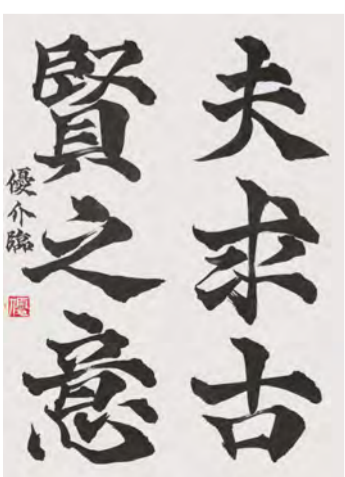 夫求古
賢之意
優介臨
優